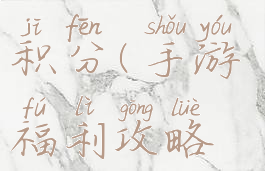 jī fēn shǒu yóu
积分(手游
fú lì gōng lüè
福利攻略